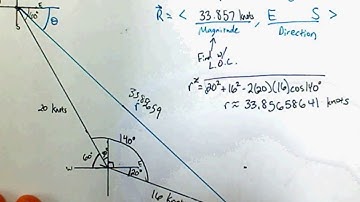 R = < 33.857 knots, E S >
Magnitude Direction
Find w/
L.O.C.
r² = 20² + 16² - 2(20)(16)cos140°
r ≈ 33.85658641 knots
S
E
30°
θ
20 knots
33.85659
r
140°
60°
W
E
20°
16 knots